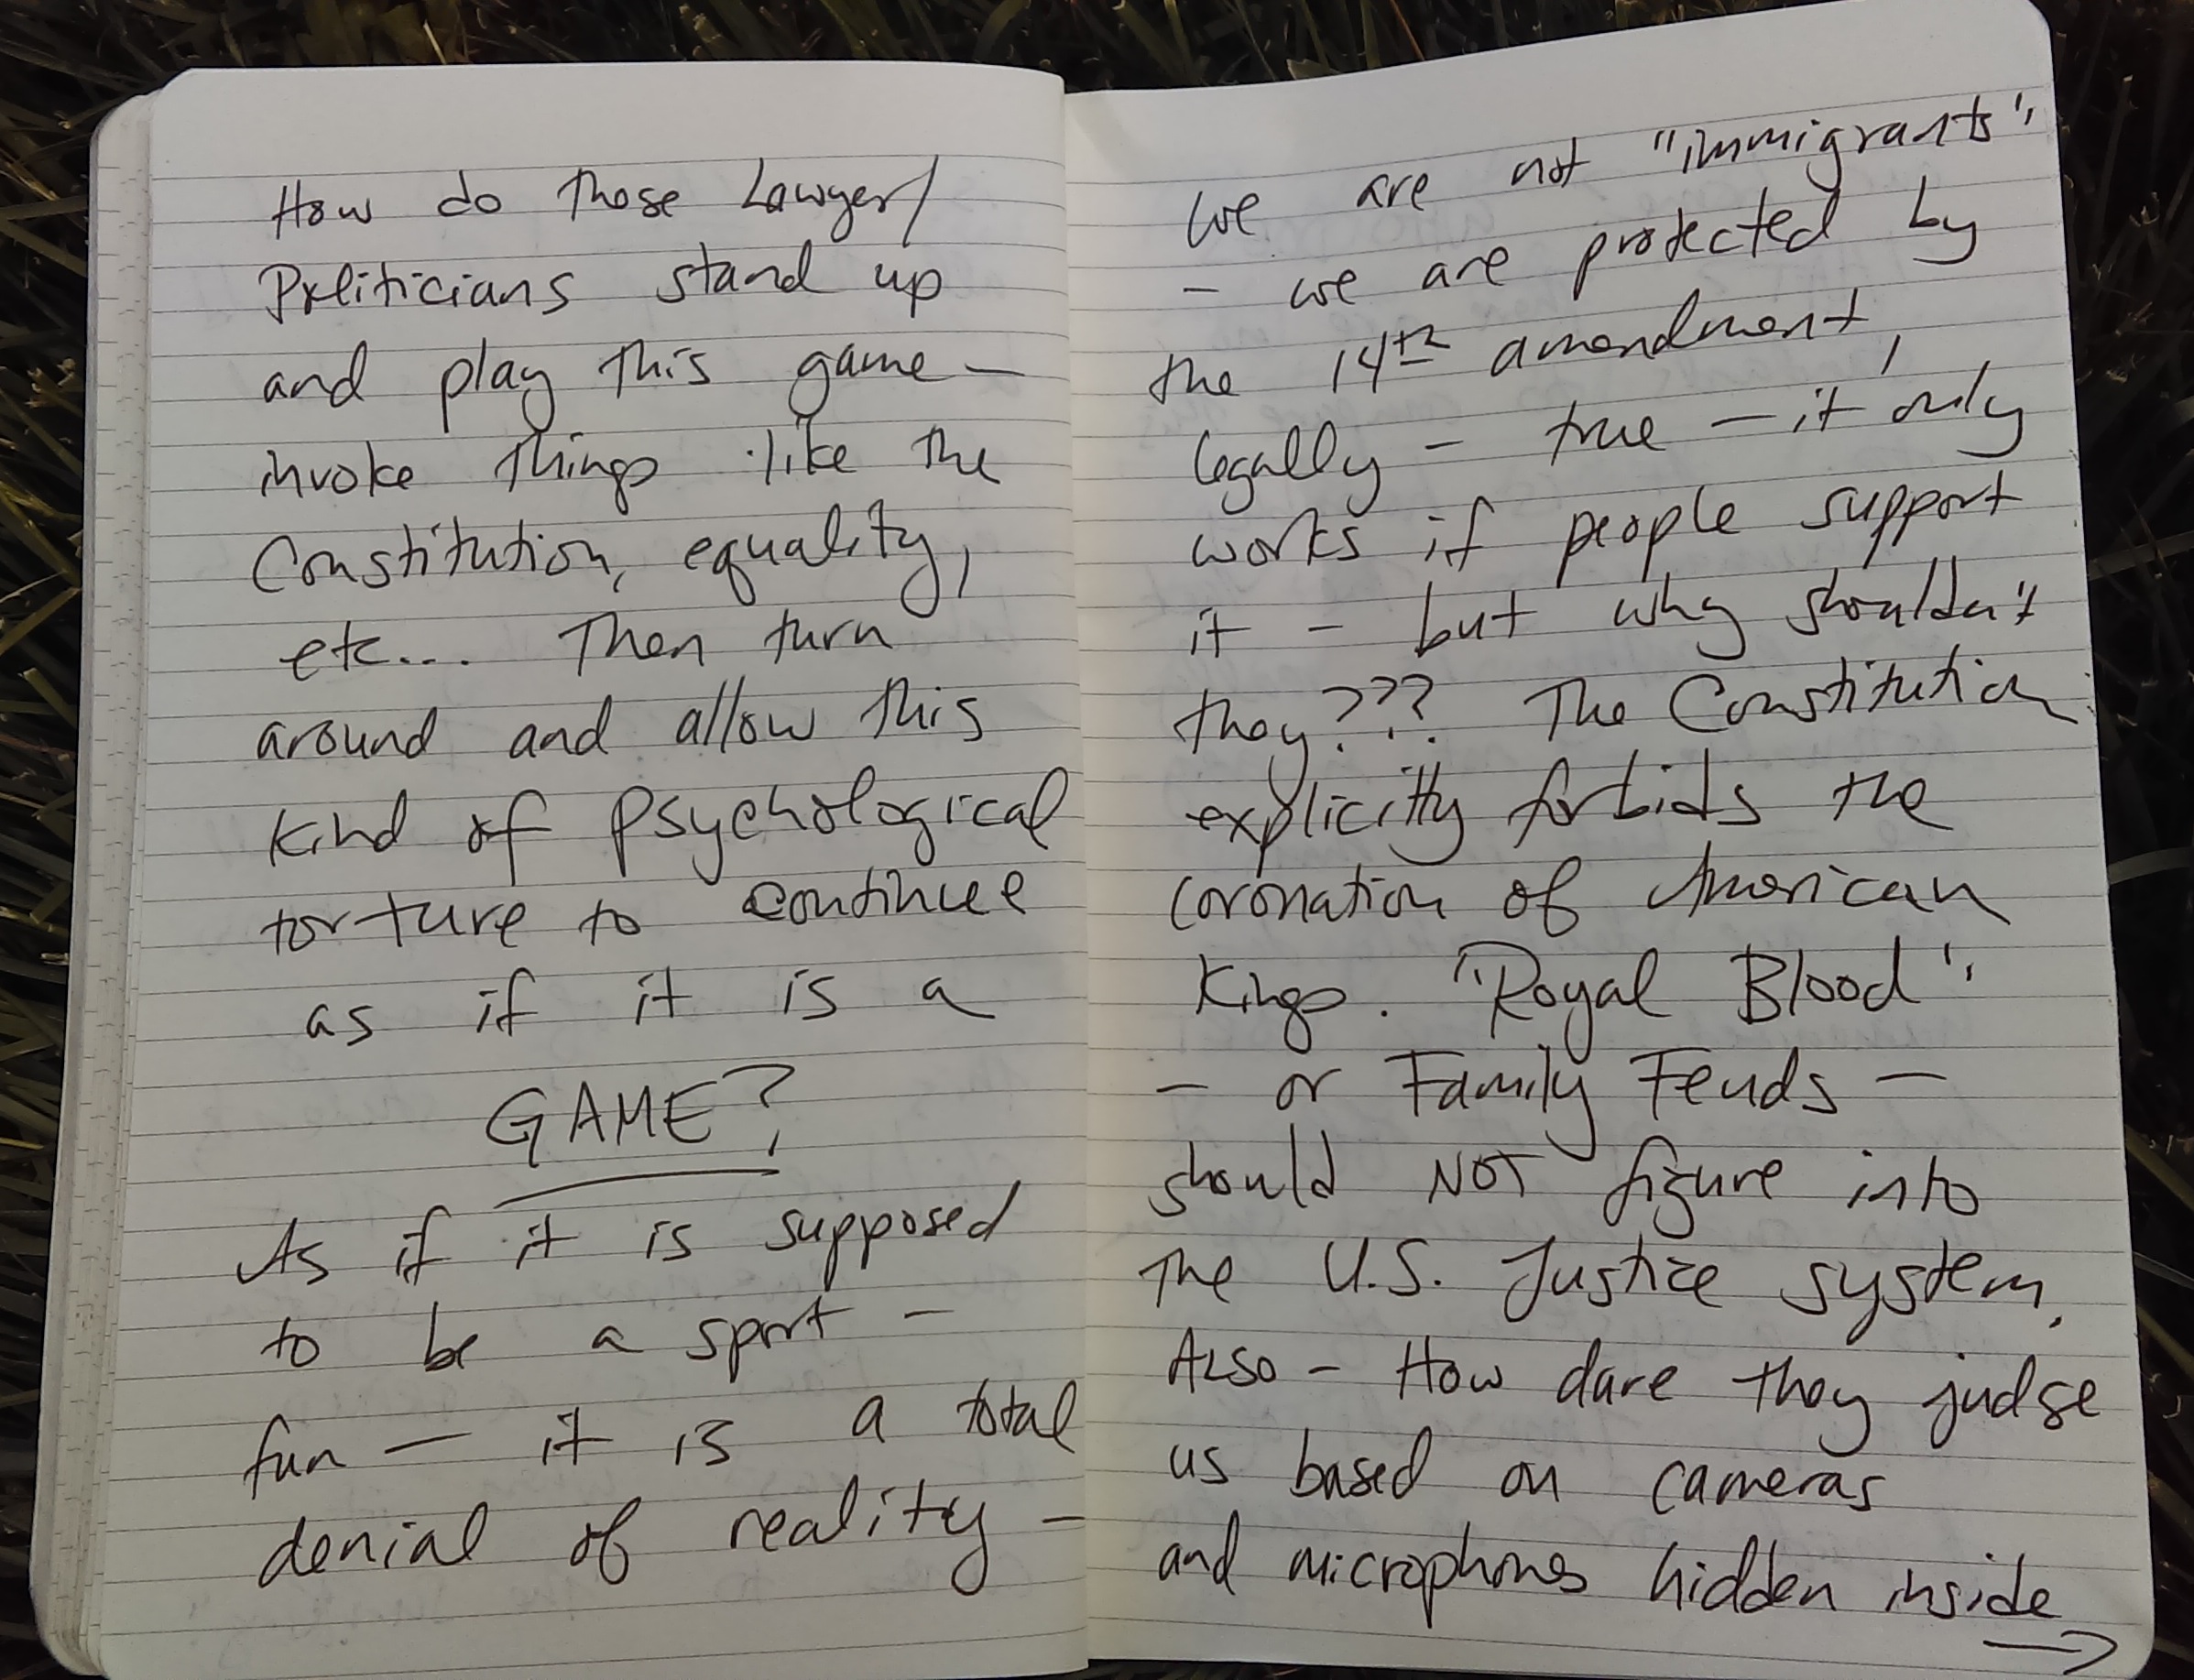 How do those Lawyer/
Politicians stand up
and play this game —
invoke things like the
Constitution, equality,
etc... Then turn
around and allow this
kind of psychological
torture to continue
as if it is a
GAME?
As if it is supposed
to be a sport —
fun — it is a total
denial of reality —
We are not "immigrants"
- we are protected by
the 14th amendment,
legally - true - it only
works if people support
it - but why shouldn't
they??? The Constitution
explicitly forbids the
coronation of American
Kings. "Royal Blood"
- or Family Feuds -
should NOT figure into
the U.S. Justice system.
ALSO - How dare they judge
us based on cameras
and microphones hidden inside
→